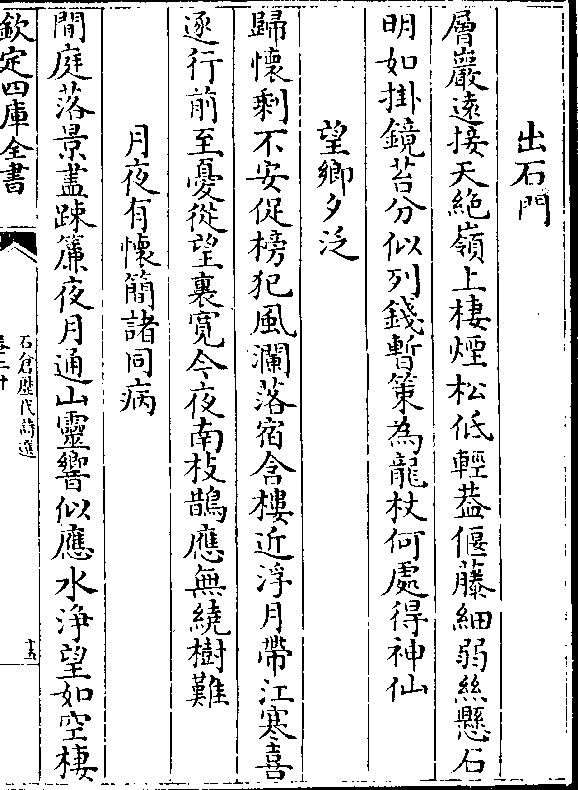 出石門
層巖遠接天絶嶺上棲煙松低輕葢偃藤細弱絲懸石
明如掛鏡苔分似列錢暫策為龍杖何處得神仙
望鄉夕泛
歸懷剩不安促榜犯風瀾落宿含樓近浮月帶江寒喜
逐行前至憂從望裏寛今夜南枝鵲應無繞樹難
月夜有懷簡諸同病
閒庭落景盡踈簾夜月通山靈響似應水浄望如空棲
欽定四庫全書
石倉歴代詩選
卷二十
十五